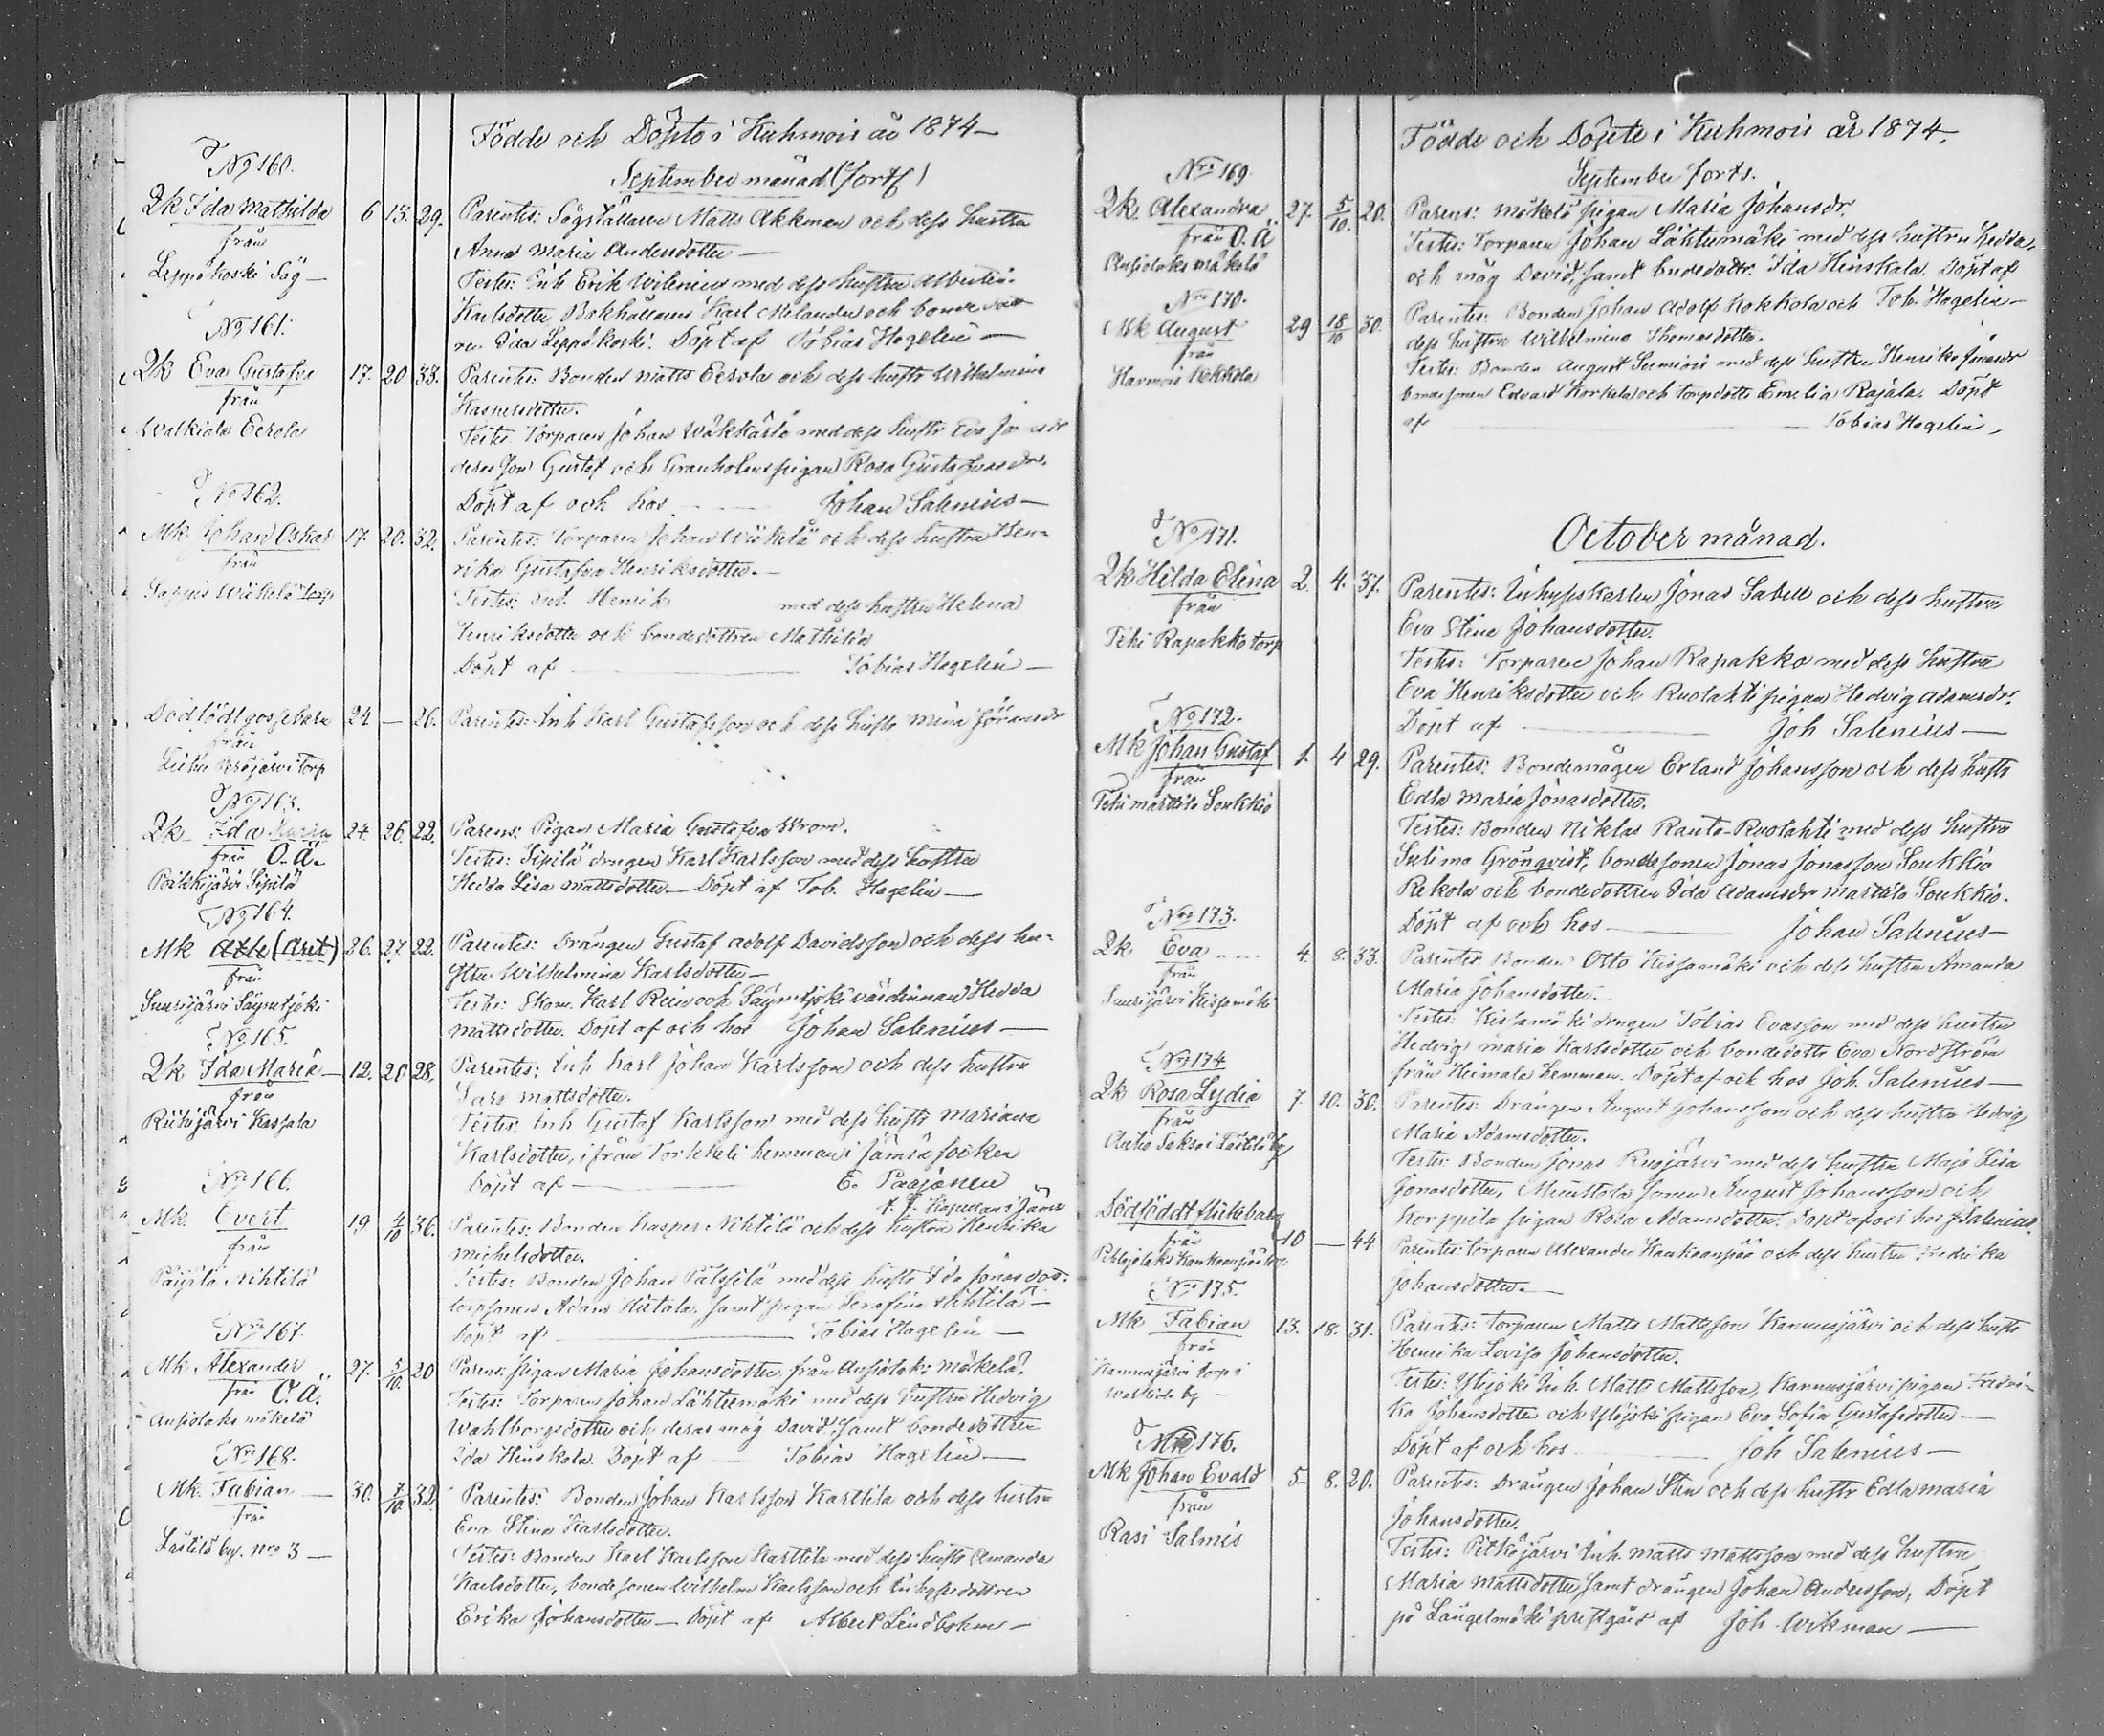 Födde och Döpte i Kuhmois år 1874
September månad (forts)
No 160.
Qk Ida Mathilda 6 13. 29.
från
Leppäkoski Såg
Parentes: Sågställaren Matts Akkman och dess hustru
Anna Maria Andersdotter
Testes: Inh Erik Wilenius med dess hustru Albertin.
Karlsdotter Bokhållaren Karl Melander och bonde
Ida Leppäkoski. Döpt af Tobias Hagelin
No 161.
Qk Eva Gustafva 17. 20 33.
från
Walkiala Eerola
Parentes: Bonden Matts Eerola och dess hustr Wilhelmina
Kaspersdotter.
Testes: Torparen Johan Wäkkärlä med dess hustr Eva
deras son Gustaf och Granholms pigan Rosa Gustafsdr.
Döpt af och hos Johan Salenius
No 162.
Mk. Johan Oskar 17. 20. 32.
från
Wäkelä torp
Parentes: Torparen Johan Wäkelä och dess hustru Hen-
rika Gustafva Henriksdotter.
Testes: Inh. Henrik med dess hustru Helena
Henriksdotter och bondedottren Mathilda
Döpt af Tobias Hagelin
Dödfödt gossebarn 24 — 26.
från
Torp
Parentes: Inh Karl Gustafsson och dess hustr Mina Göransdr
No 163.
Qk Ida Maria 24. 26. 22.
från O.Ä.
Poikkijärvi Sipilä
Parens: Pigan Maria Gustafva Strom.
Testes: Sipilä drengen Karl Karlsson med dess hustru
Hedda Lisa Mattsdotter. Döpt af Tob. Hagelin
No 164.
Mk Axel (Arvt) 26. 27. 22.
från
Sunrijärvi Säynetjoki
Parentes: Drängen Gustaf Adolf Davidsson och dess hu-
stru Wilhelmina Karlsdotter
Testes: Skom. Karl Rein och Säynetjoki värdinnan Hedda
Mattsdotter. Döpt af och hos Johan Salenius
No 165.
Qk Ida Maria 12. 20 28.
från
Riihijärvi Kassala
Parentes: Inh Karl Johan Karlsson och dess hustru
Sara Mattsdotter.
Testes: Inh Gustaf Karlsson med dess hustr Mariana
Karlsdotter, ifrån Torkkeli hemman i Jämsä socken
Döpt af E. Paajanen
t. f. Kapellan i Jämsä
No 166.
Mk. Evert 19 4/10 36.
från
Päijälä Nihtilä
Parentes: Bonden Kasper Nihtilä och dess hustru Henrika
Michelsdotter.
Testes: Bonden Johan Pätsilä med dess hustr Ida Jonasdot.
torpsonen Adam Hietala, samt pigan Serafina Nihtilä
Döpt af Tobias Hagelin
Nro 167.
Mk Alexander 27. 5/10. 20
från O.Ä.
Ansiolaks Mäkelä
Parens: pigan Maria Johansdotter från Ansiolaks Mäkelä.
Testes: Torparen Johan Lähteemäki med dess hustru Hedvig
Wahlborgsdotter och deras måg David, samt bondedottren
Ida Heinskala. Döpt af Tobias Hagelin
No 168.
Mk. Fabian 30. 7/10 32.
från
Lästilä by. nro 3
Parentes: Bonden Johan Karlsson Karttila och dess hustru
Eva Stina Karlsdotter.
Testes: Bonden Karl Karlsson Karttila med dess hustr Amanda
Karlsdotter, bondesonen Wilhelm Karlsson och Inhysesdottren
Erika Johansdotter. Döpt af Albert Lindbohm
Födde och Döpte i Kuhmois år 1874.
September forts.
Nro 169.
Qk. Alexandra 27. 5/10. 20.
från O.Ä
Ansiolaks Mäkelä
Parens: Mäkelä pigan Maria Johansdr.
Testes: Torparen Johan Lähteemäki med dess hustru Hedda,
och måg David, samt bondedottr. Ida Heinskala. Döpt af
Tob. Hagelin
Nro 170.
Mk August 29 18/10 30.
från
Harmois Kokkola
Parentes: Bonden Johan Adolf Kokkola och
dess hustru Wilhelmina Thomasdotter.
Testes: Bonden August Sunioi med dess hustru Henrika Jonasdr
bondesonen Edvard Korkela och torpdottr Emelia Rajala. Döpt
af Tobias Hagelin
October månad.
No 171.
Qk Hilda Elina 2. 4. 37.
från
Tehi Rapakko torp
Parentes: Inhyseskarlen Jonas Sabell och dess hustru
Eva Stina Johansdotter.
Testes: Torparen Johan Rapakko med dess hustru
Eva Henriksdotter och Ruolahti pigan Hedvig Adamsdr.
Döpt af Joh Salenius
No 172.
Mk Johan Gustaf 1. 4 29.
från
Tehi Marttila Soukkio
Parentes: Bondemågen Erland Johansson och dess hustr
Edla Maria Jonasdotter.
Testes: Bonden Niklas Rauta-Ruolahti med dess hustru
Sulima Grönqvist, bondesonen Jonas Jonasson Soukkio
Rekola och bondedottren Ida Adamsdr Marttila Soukkio.
Döpt af och hos Johan Salenius
Nro 173.
Qk Eva 4. 8. 33.
från
Sunrijärvi Kissamäki
Parentes: Bonden Otto Kissamäki och dess hustru Amanda
Maria Johansdotter.
Testes: Kissamäki drengen Tobias Evasson med dess hustru
Hedvig Maria Karlsdotter och bondedottr Eva Nordström
från Heimala hemman. Döpt af och hos Joh. Salenius
No 174
Qk Rosa Lydia 7. 10. 30.
från
Auhio Saksa i Lästilä by
Parentes: Drängen August Johansson och dess hustru Hedvig
Maria Adamsdotter.
Testes: Bonden Jonas Ruojärvi med dess hustru Maja Lisa
Jonasdotter, Minttola sonen August Johansson och
Korppila pigan Rosa Adamsdotter. Döpt af och hos J Salenius
Dödfödt flickebarn 10 — 44
från
Pihlajalaks Kankaanpää torp
Parentes: Torparen Alexander Kankaanpää och dess hustru Fredrika
Johansdotter.
Nro 175.
Mk Fabian 13. 18. 31.
från
Kannusjärvi torp i
Walkiala by
Parentes: Torparen Matts Mattsson Kannusjärvi och dess hustr
Henrika Lovisa Johansdotter.
Testes: Ylijoki Inh. Matts Mattsson, Kannusjärvi pigan Fredri-
ka Johansdotter och Ylöjoki pigan Eva Sofia Gustafsdotter
Döpt af och hos Joh Salenius
Nro 176.
Mk Johan Evald 5 8. 20.
från
Rasi Salmis
Parentes: Drängen Johan Sten och dess hustr Edla Maria
Johansdotter.
Testes: Pitkäjärvi Inh. Matts Mattsson med dess hustru
Maria Mattsdotter samt drängen Johan Andersson, Döpt
på Längelmäki prestgård af Joh. Wikman